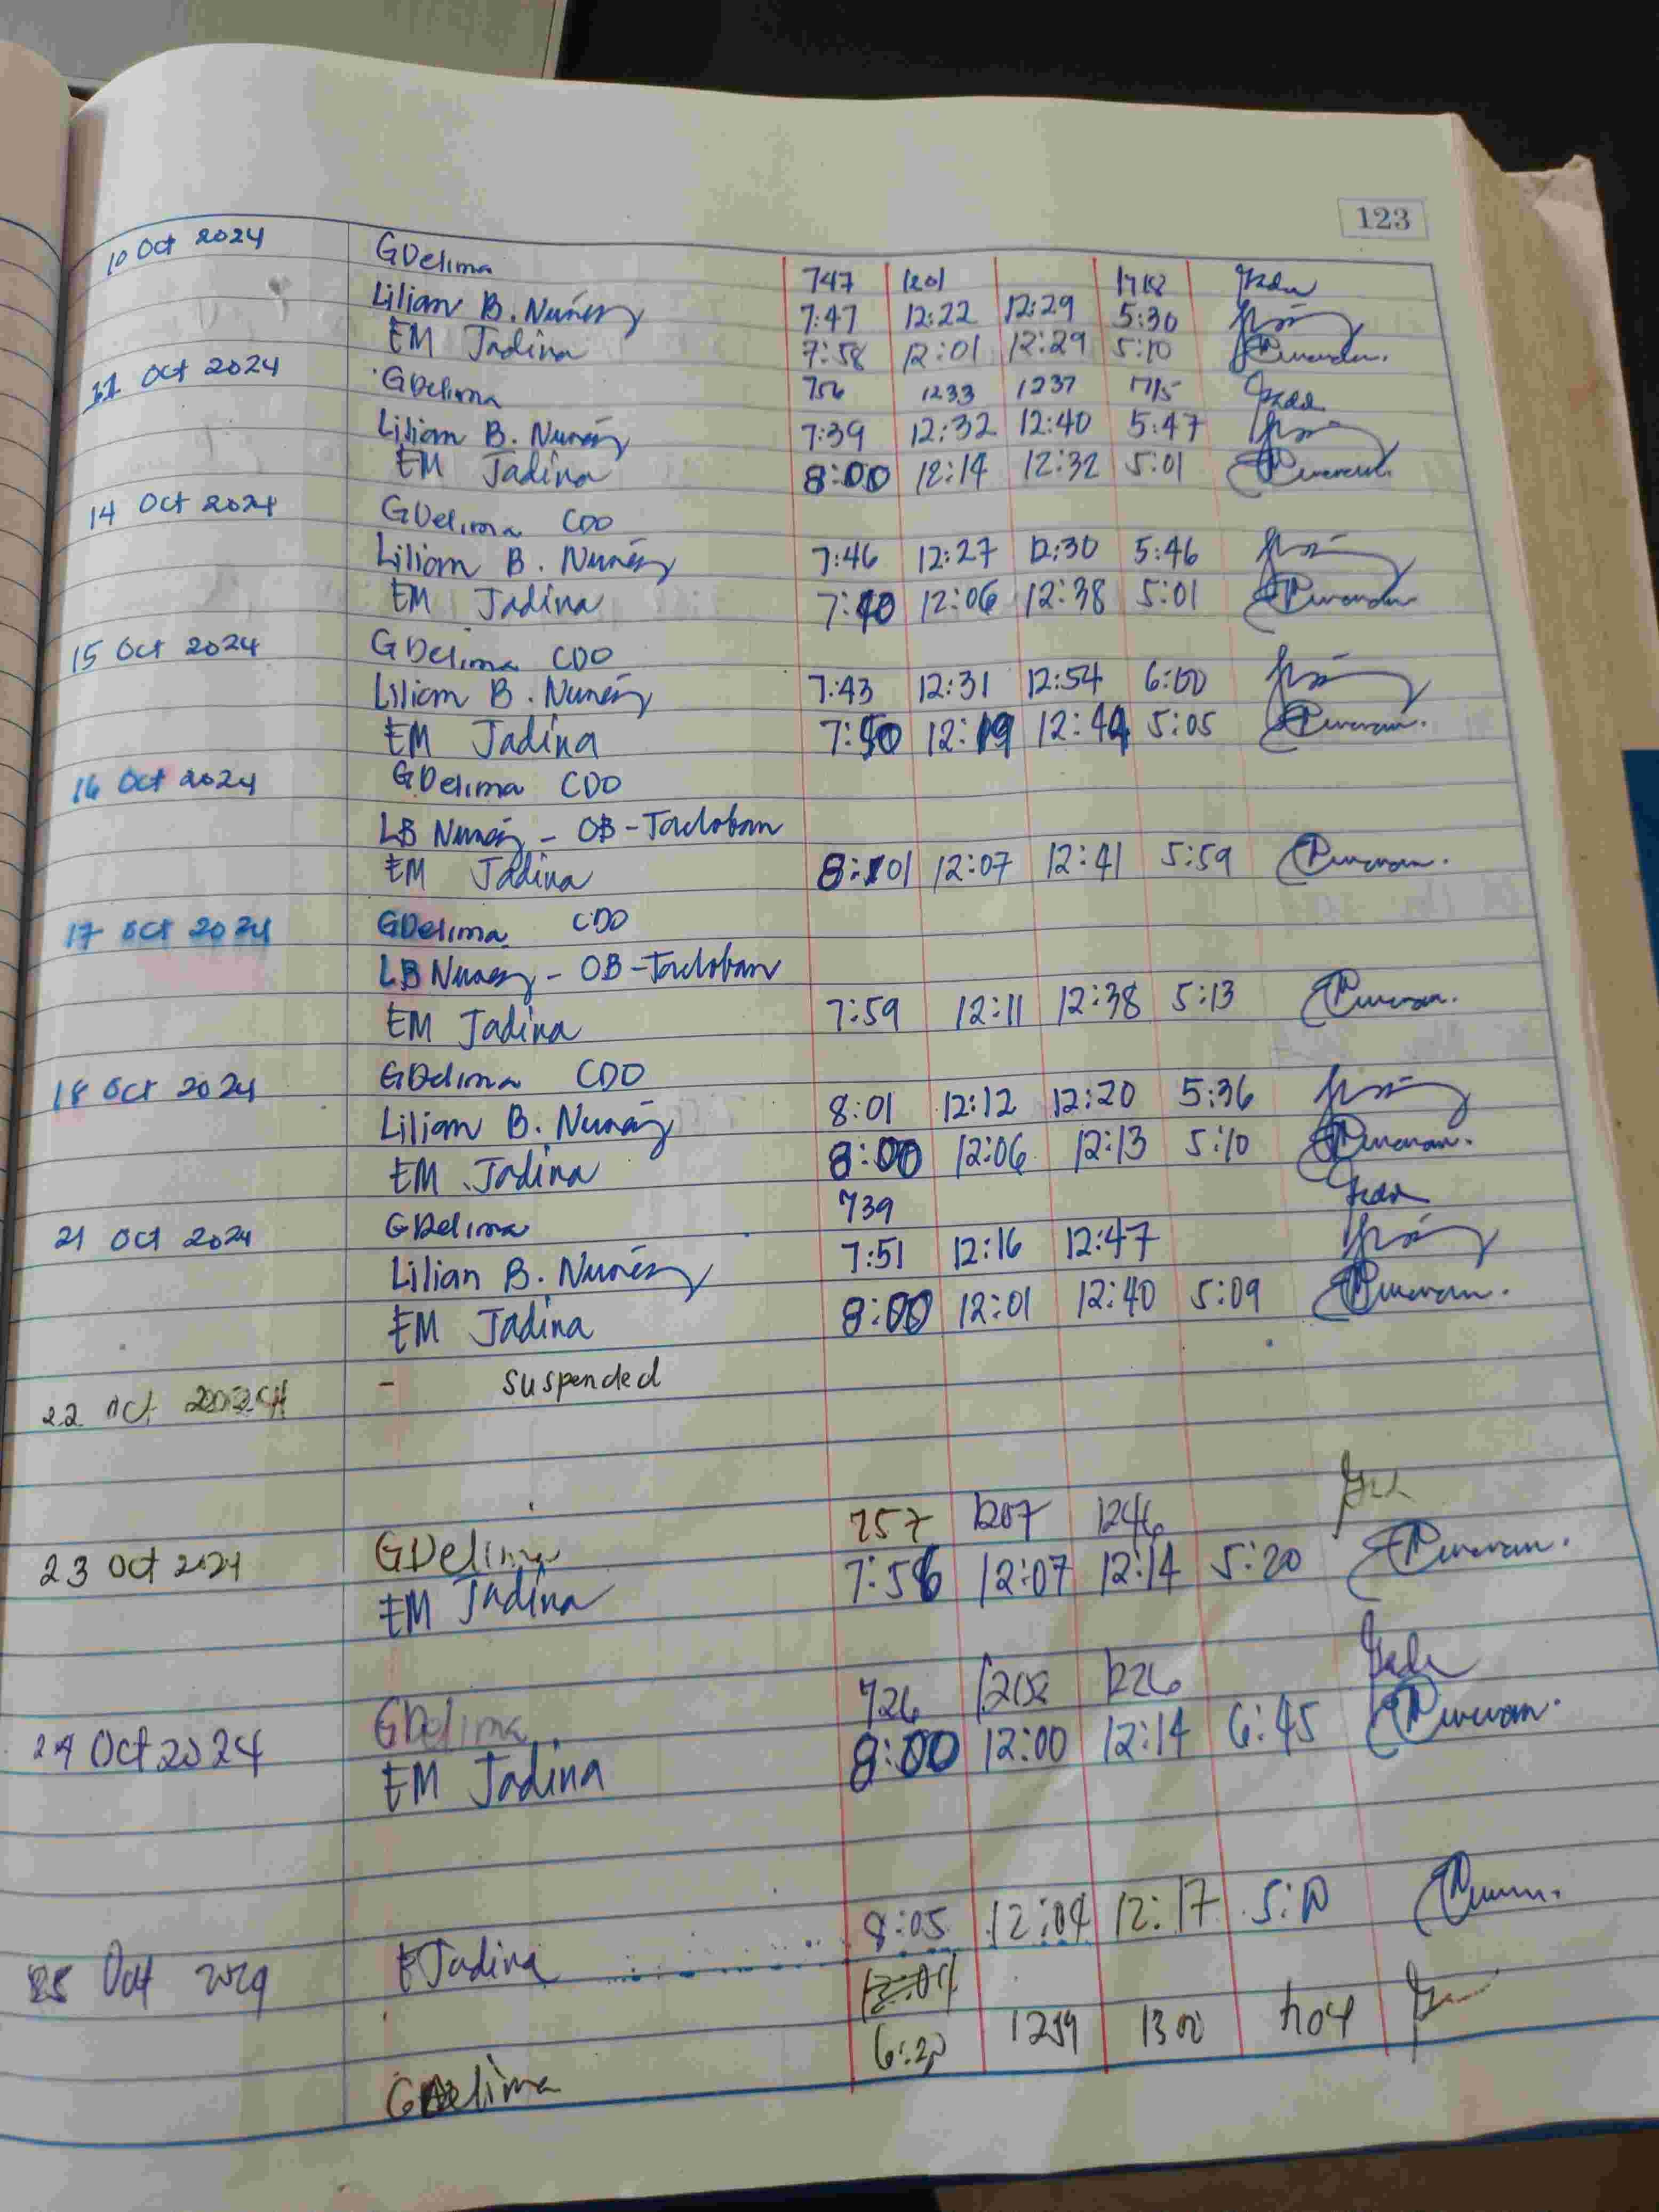 123
10 Oct 2024 GDelima 747 1201 1718
Lilian B. Nuñez 7:47 12:22 12:29 5:30
EM Jadina 7:58 12:01 12:29 5:10
11 Oct 2024 GDelima 756 1233 1237 1715
Lilian B. Nuñez 7:39 12:32 12:40 5:47
EM Jadina 8:00 12:14 12:32 5:01
14 Oct 2024 GDelima CDO
Lilian B. Nuñez 7:46 12:27 12:30 5:46
EM Jadina 12:06 12:38 5:01
15 Oct 2024 GDelima CDO
Lilian B. Nuñez 7:43 12:31 12:54 6:00
EM Jadina 7:50 12:19 12:44 5:05
16 Oct 2024 GDelima CDO
LB Nunez - OB - Tacloban
EM Jadina 12:07 12:41 5:59
17 Oct 2024 GDelima CDO
LB Nunez - OB - Tacloban
EM Jadina 7:59 12:11 12:38 5:13
18 Oct 2024 GDelima CDO
Lilian B. Nuñez 8:01 12:12 12:20 5:36
EM Jadina 8:00 12:06 12:13 5:10
21 Oct 2024 GDelima 739
Lilian B. Nuñez 7:51 12:16 12:47
EM Jadina 8:00 12:01 12:40 5:09
22 Oct 2024 - suspended
23 Oct 2024 GDelima 757 1207 1246
EM Jadina 7:56 12:07 12:14 5:20
24 Oct 2024 GDelima 726 1202 1226
EM Jadina 8:00 12:00 12:14 6:45
25 Oct 2024 EJadina 8:05 12:04 12:17 5:10
GDelima 6:20 1259 1300 1704